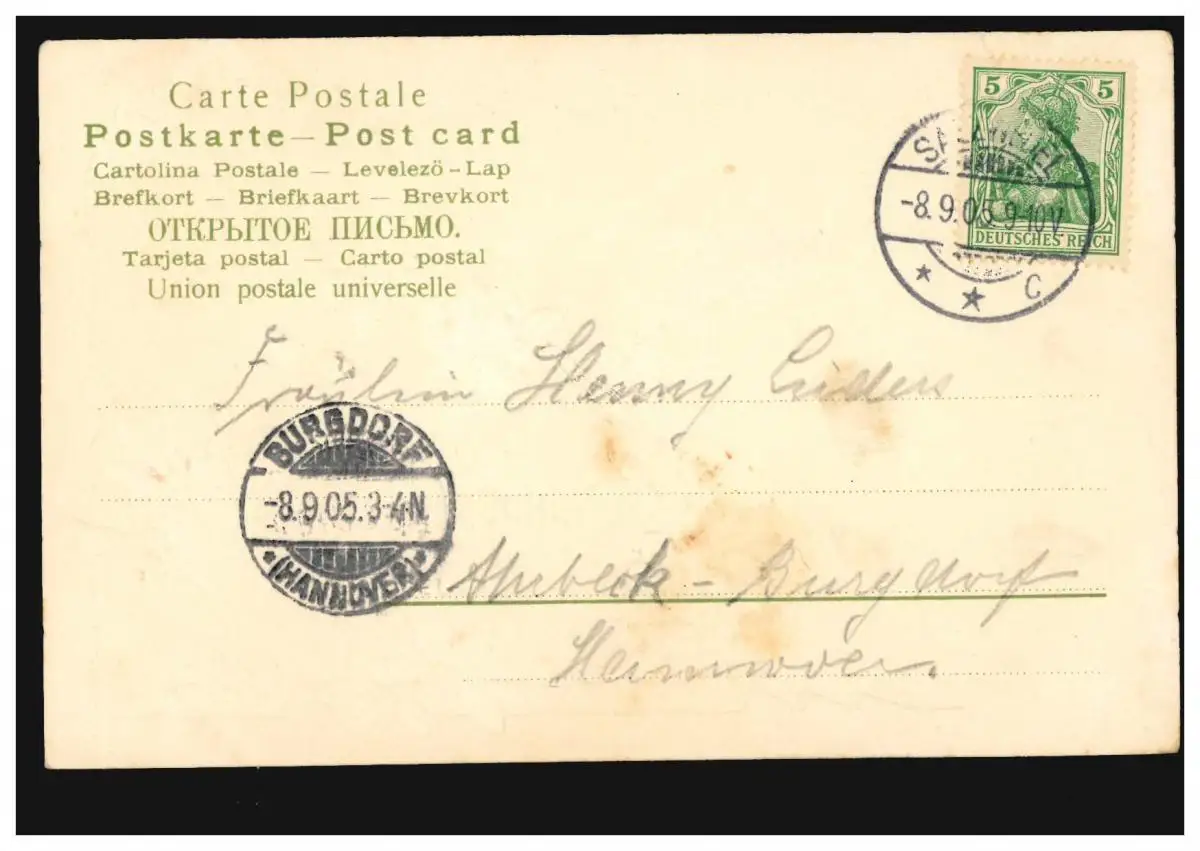 Carte Postale
Postkarte — Post card
Cartolina Postale — Levelezö-Lap
Brefkort — Briefkaart — Brevkort
ОТКРЫТОЕ ПИСЬМО.
Tarjeta postal — Carto postal
Union postale universelle
5 5
DEUTSCHES REICH
-8.9.05.9-10V
* * C
Fräulein Henny Lüders
BURGDORF
-8.9.05.3-4N.
* (HANNOVER) *
Ahrbeck - Burgdorf
Hannover.